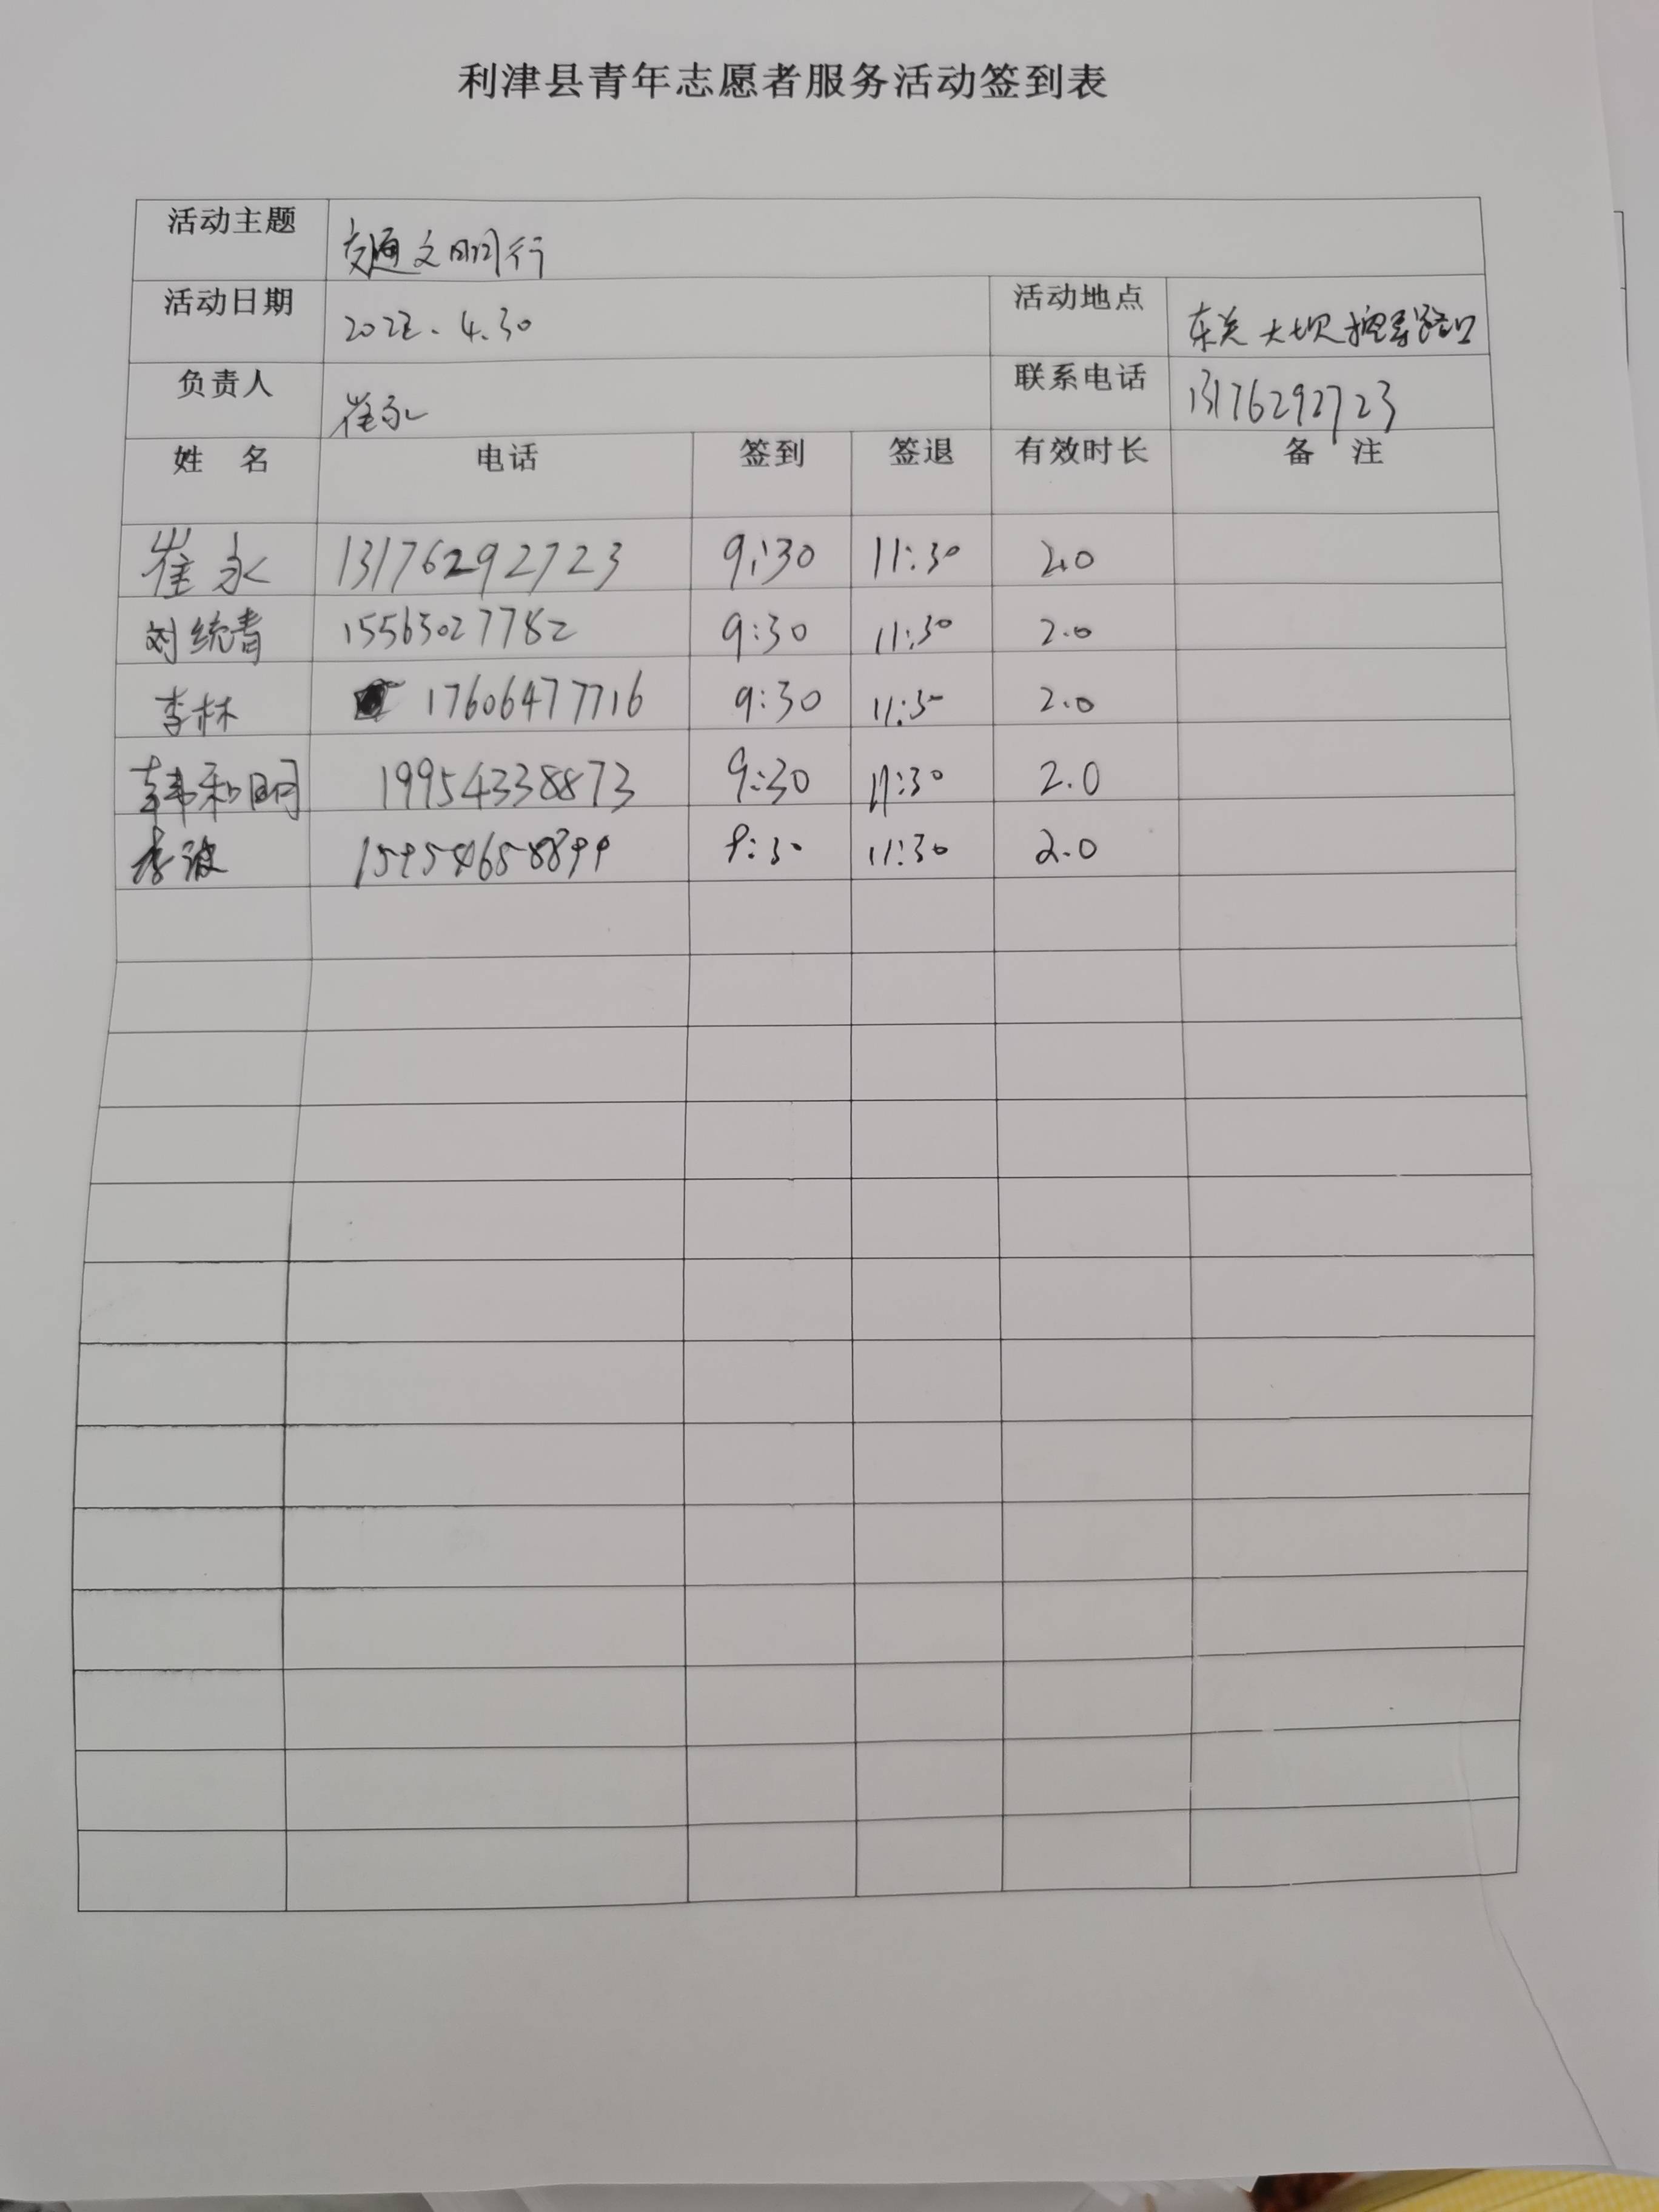 利津县青年志愿者服务活动签到表
活动主题 交通文明同行
活动日期 2022.4.30 活动地点 东关大坝路口
负责人 崔永 联系电话 13176292723
姓 名 电话 签到 签退 有效时长 备 注
崔永 13176292723 9:30 11:30 2.0
刘统青 15563027782 9:30 11:30 2.0
李林 17606477716 9:30 11:30 2.0
韩和明 19954338873 9:30 11:30 2.0
李波 15954658899 9:30 11:30 2.0